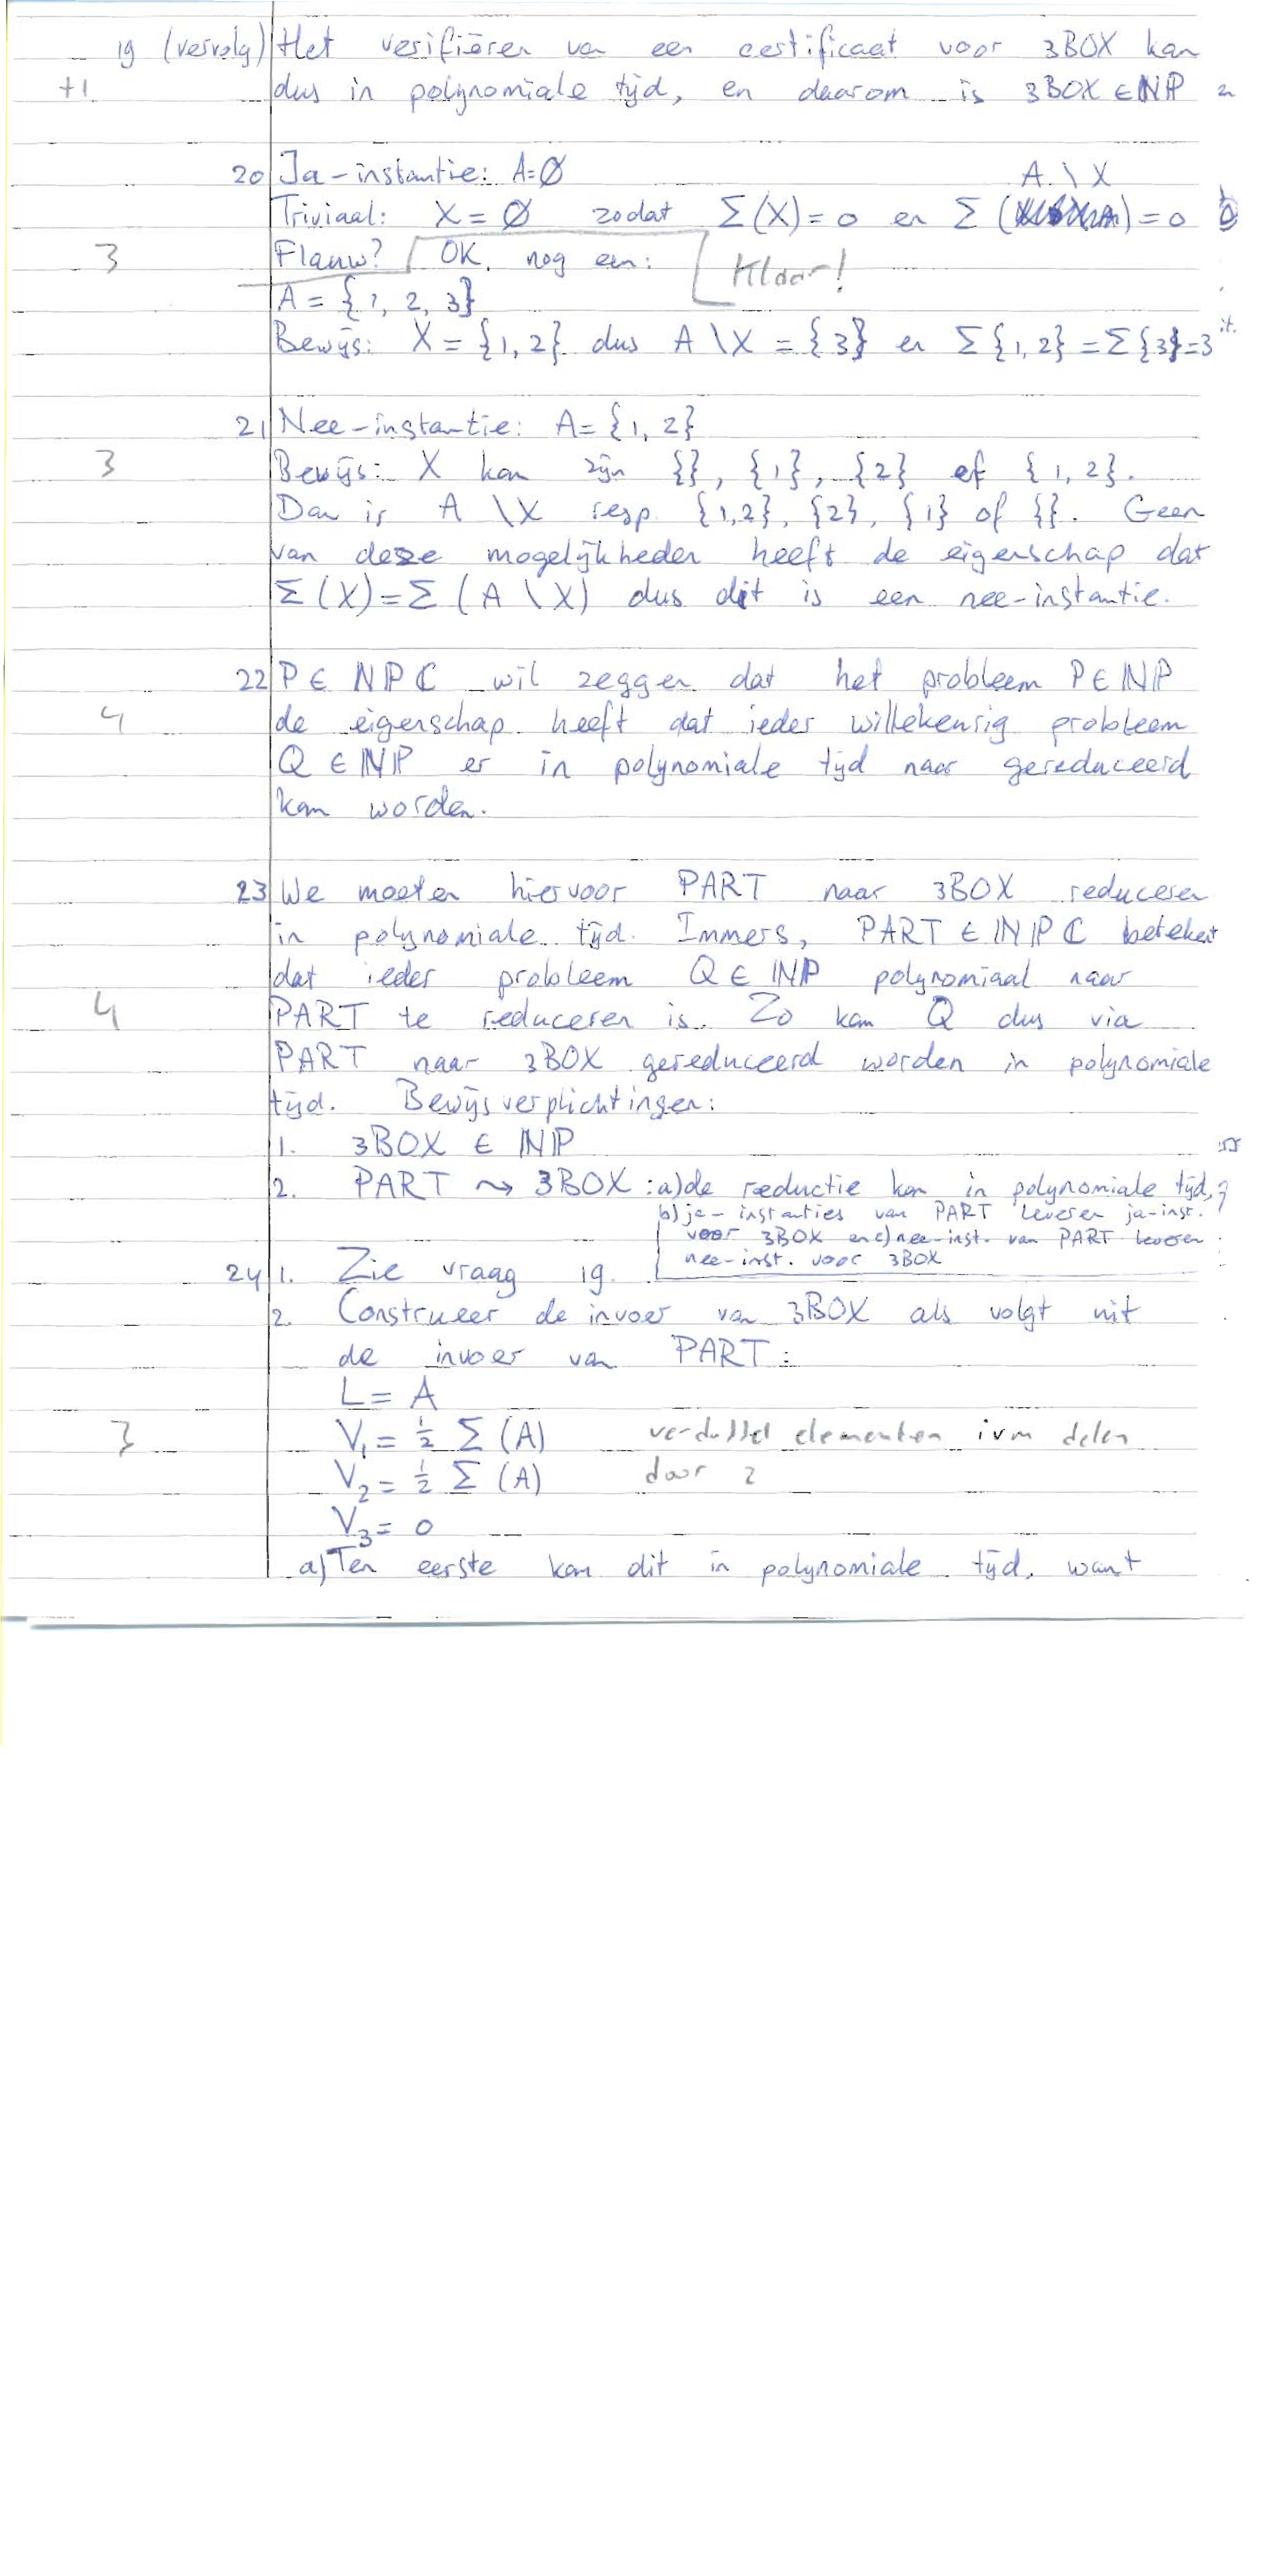 19 (vervolg) Het verifiëren van een certificaat voor 3BOX kan
+1 dus in polynomiale tijd, en daarom is 3BOX ∈ NP
20 Ja-instantie: A=∅
A \ X
Triviaal: X = ∅ zodat Σ(X) = 0 en Σ ( ) = 0
3 Flauw? OK, nog een: Klaar!
A = {1, 2, 3}
Bewijs: X = {1,2} dus A \ X = {3} en Σ{1,2} = Σ{3}=3
21 Nee-instantie: A = {1, 2}
3 Bewijs: X kan zijn {}, {1}, {2} of {1, 2}.
Dan is A \ X resp. {1,2}, {2}, {1} of {}. Geen
van deze mogelijkheden heeft de eigenschap dat
Σ(X) = Σ(A \ X) dus dit is een nee-instantie.
22 P ∈ NPC wil zeggen dat het probleem P ∈ NP
4 de eigenschap heeft dat ieder willekeurig probleem
Q ∈ NP er in polynomiale tijd naar gereduceerd
kan worden.
23 We moeten hiervoor PART naar 3BOX reduceren
in polynomiale tijd. Immers, PART ∈ NPC betekent
dat ieder probleem Q ∈ NP polynomiaal naar
4 PART te reduceren is. Zo kan Q dus via
PART naar 3BOX gereduceerd worden in polynomiale
tijd. Bewijsverplichtingen:
1. 3BOX ∈ NP
2. PART ⇝ 3BOX: a) de reductie kan in polynomiale tijd,
b) ja-instanties van PART leveren ja-inst.
voor 3BOX en c) nee-inst. van PART leveren
nee-inst. voor 3BOX
24 1. Zie vraag 19.
2. Construeer de invoer van 3BOX als volgt uit
de invoer van PART:
L = A
3 V₁ = ½ Σ (A) verdubbel elementen ivm delen
V₂ = ½ Σ (A) door 2
V₃ = 0
a) Ten eerste kan dit in polynomiale tijd, want